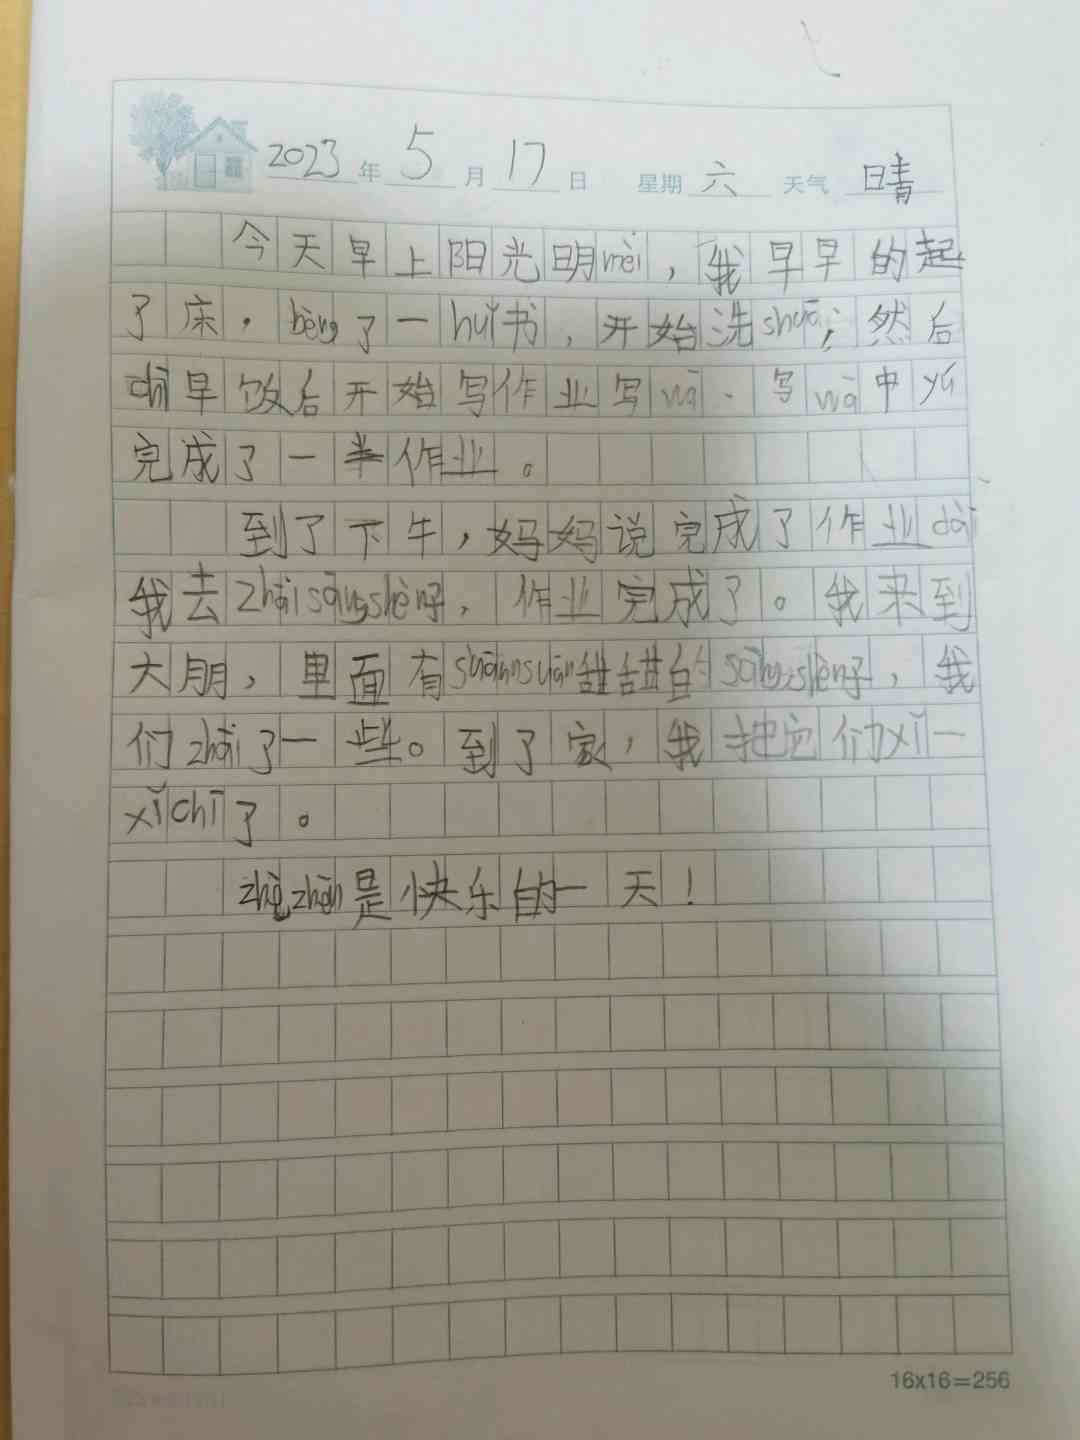 2023年5月17日 星期六 天气 晴
今天早上阳光明mèi，我早早的起
了床，bèng了一huǐ书，开始洗shuā；然后
chī早饭后开始写作业写wā．写wā中yú
完成了一半作业。
到了下牛，妈妈说完成了作业dài
我去zhāisāngshèn子，作业完成了。我来到
大朋，里面有suānsuān甜甜的sāngshèn子，我
们zhāi了一些。到了家，我把它们xǐ一
xǐchī了。
zhēzhēn是快乐的一天！
16x16=256